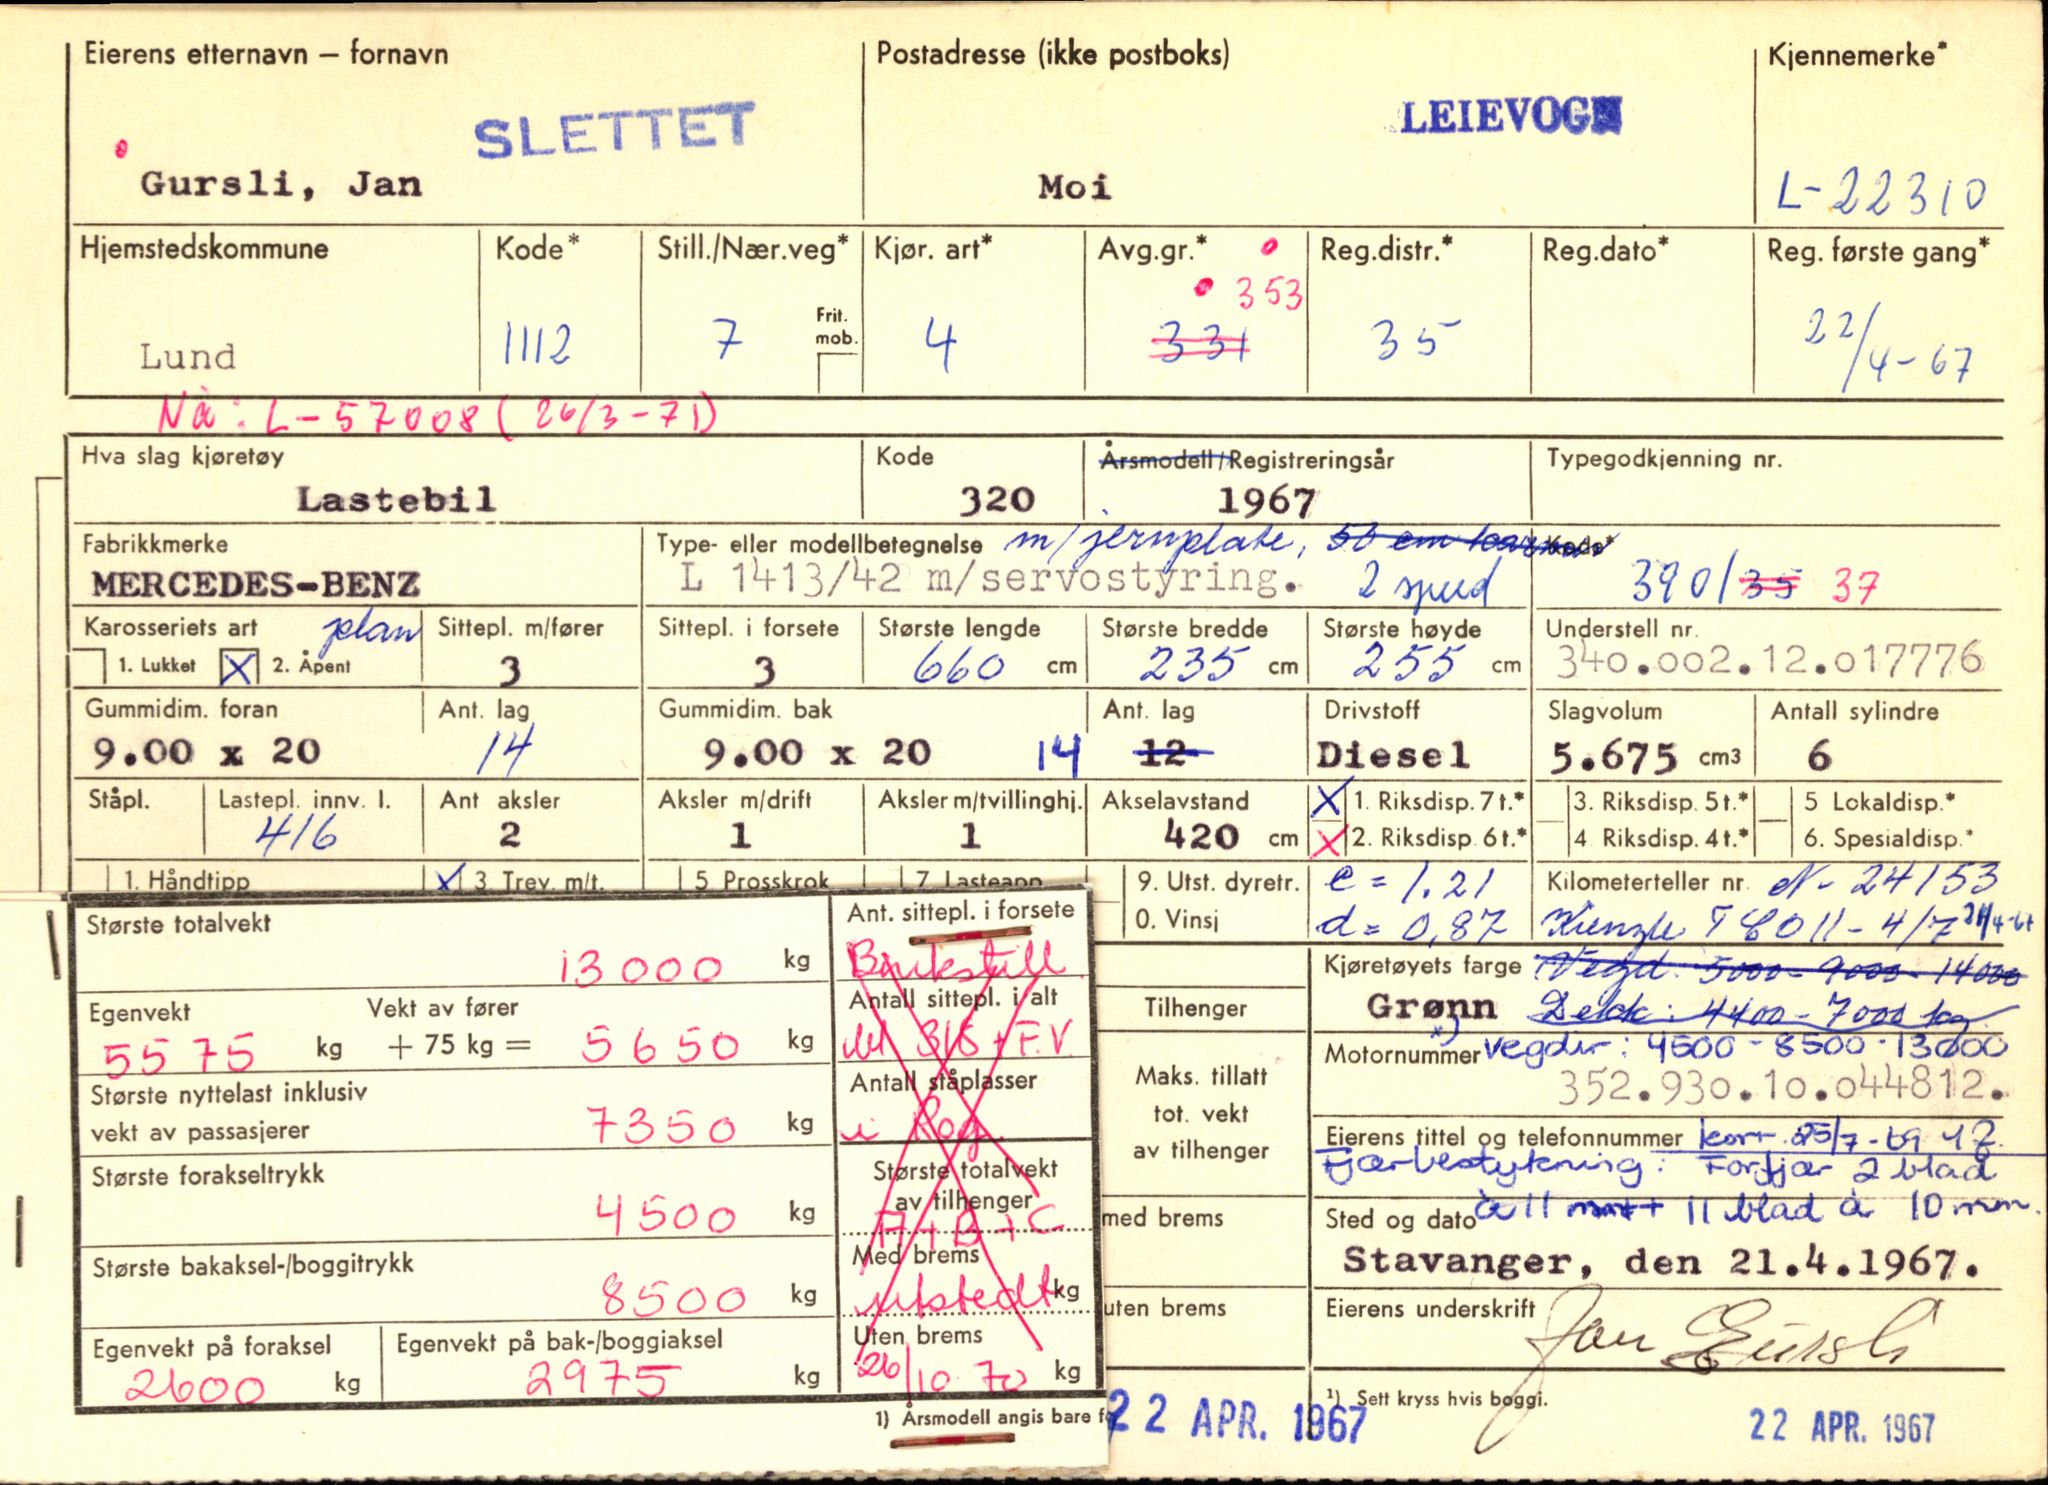 Eierens etternavn – fornavn
Postadresse (ikke postboks)
Kjennemerke*
SLETTET
LEIEVOGN
Gursli, Jan
Moi
L-22310
Hjemstedskommune
Kode*
Still./Nær.veg*
Kjør. art*
Avg.gr.*
Reg.distr.*
Reg.dato*
Reg. første gang*
353
Lund
1112
7
Frit. mob.
4
331
35
22/4-67
Nå: L-57008 (26/3-71)
Hva slag kjøretøy
Kode
Årsmodell/Registreringsår
Typegodkjenning nr.
Lastebil
320
1967
Fabrikkmerke
Type- eller modellbetegnelse m/jernplate, 50 cm
Kode*
MERCEDES-BENZ
L 1413/42 m/servostyring. 2 speed
390/35 37
Karosseriets art plan
Sittepl. m/fører
Sittepl. i forsete
Største lengde
Største bredde
Største høyde
Understell nr.
1. Lukket X 2. Åpent
3
3
660 cm
235 cm
255 cm
340.002.12.017776
Gummidim. foran
Ant. lag
Gummidim. bak
Ant. lag
Drivstoff
Slagvolum
Antall sylindre
9.00 x 20
14
9.00 x 20
14 12
Diesel
5.675 cm3
6
Ståpl.
Lastepl. innv. l.
Ant aksler
Aksler m/drift
Aksler m/tvillinghj.
Akselavstand
X 1. Riksdisp. 7 t.*
3. Riksdisp. 5 t.*
5 Lokaldisp.*
416
2
1
1
420 cm
X 2. Riksdisp. 6 t.*
4 Riksdisp. 4 t.*
6. Spesialdisp.*
1. Håndtipp
X 3 Trev. m/t.
5 Prosskrok
7 Lasteapp
9. Utst. dyretr.
e = 1.21
Kilometerteller nr N-24153
0. Vinsj
d = 0,87
Kienzle TCO 11 - 4/7 21/4-67
Største totalvekt
13000 kg
Ant. sittepl. i forsete
Brukstill.
Egenvekt
Vekt av fører
5575 kg + 75 kg = 5650 kg
Antall sittepl. i alt
bl 3/S + F.V.
Største nyttelast inklusiv
vekt av passasjerer
7350 kg
Antall ståplasser
i Rog.
Største forakseltrykk
4500 kg
Største totalvekt
av tilhenger
A + B + C
Største bakaksel-/boggitrykk
8500 kg
Med brems
utstedt kg
Egenvekt på foraksel
2600 kg
Egenvekt på bak-/boggiaksel
2975 kg
Uten brems
26/10 70 kg
1) Årsmodell angis bare f
Tilhenger
Maks. tillatt
tot. vekt
av tilhenger
med brems
uten brems
Kjøretøyets farge Vegd. 5000 - 9000 - 14000
Grønn Dekk: 4400 - 7000 kg.
Motornummer x) vegdir: 4500 - 8500 - 13000
352.930.10.044812.
Eierens tittel og telefonnummer korr. 25/7-69
Fjærbestykning: Forfjær 2 blad
Sted og dato à 11 mm + 11 blad à 10 mm.
Stavanger, den 21.4.1967.
Eierens underskrift
Jan Gursli
1) Sett kryss hvis boggi.
22 APR. 1967
22 APR. 1967